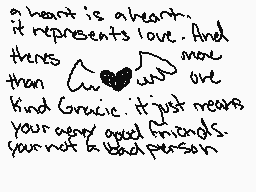 a heart is a heart.
it represents love. And
theres more
than one
kind Gracie. it just means
your very good friends.
your not a bad person